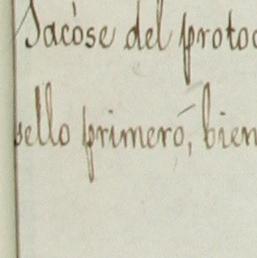 Sacóse del proto
sello primeró, bien